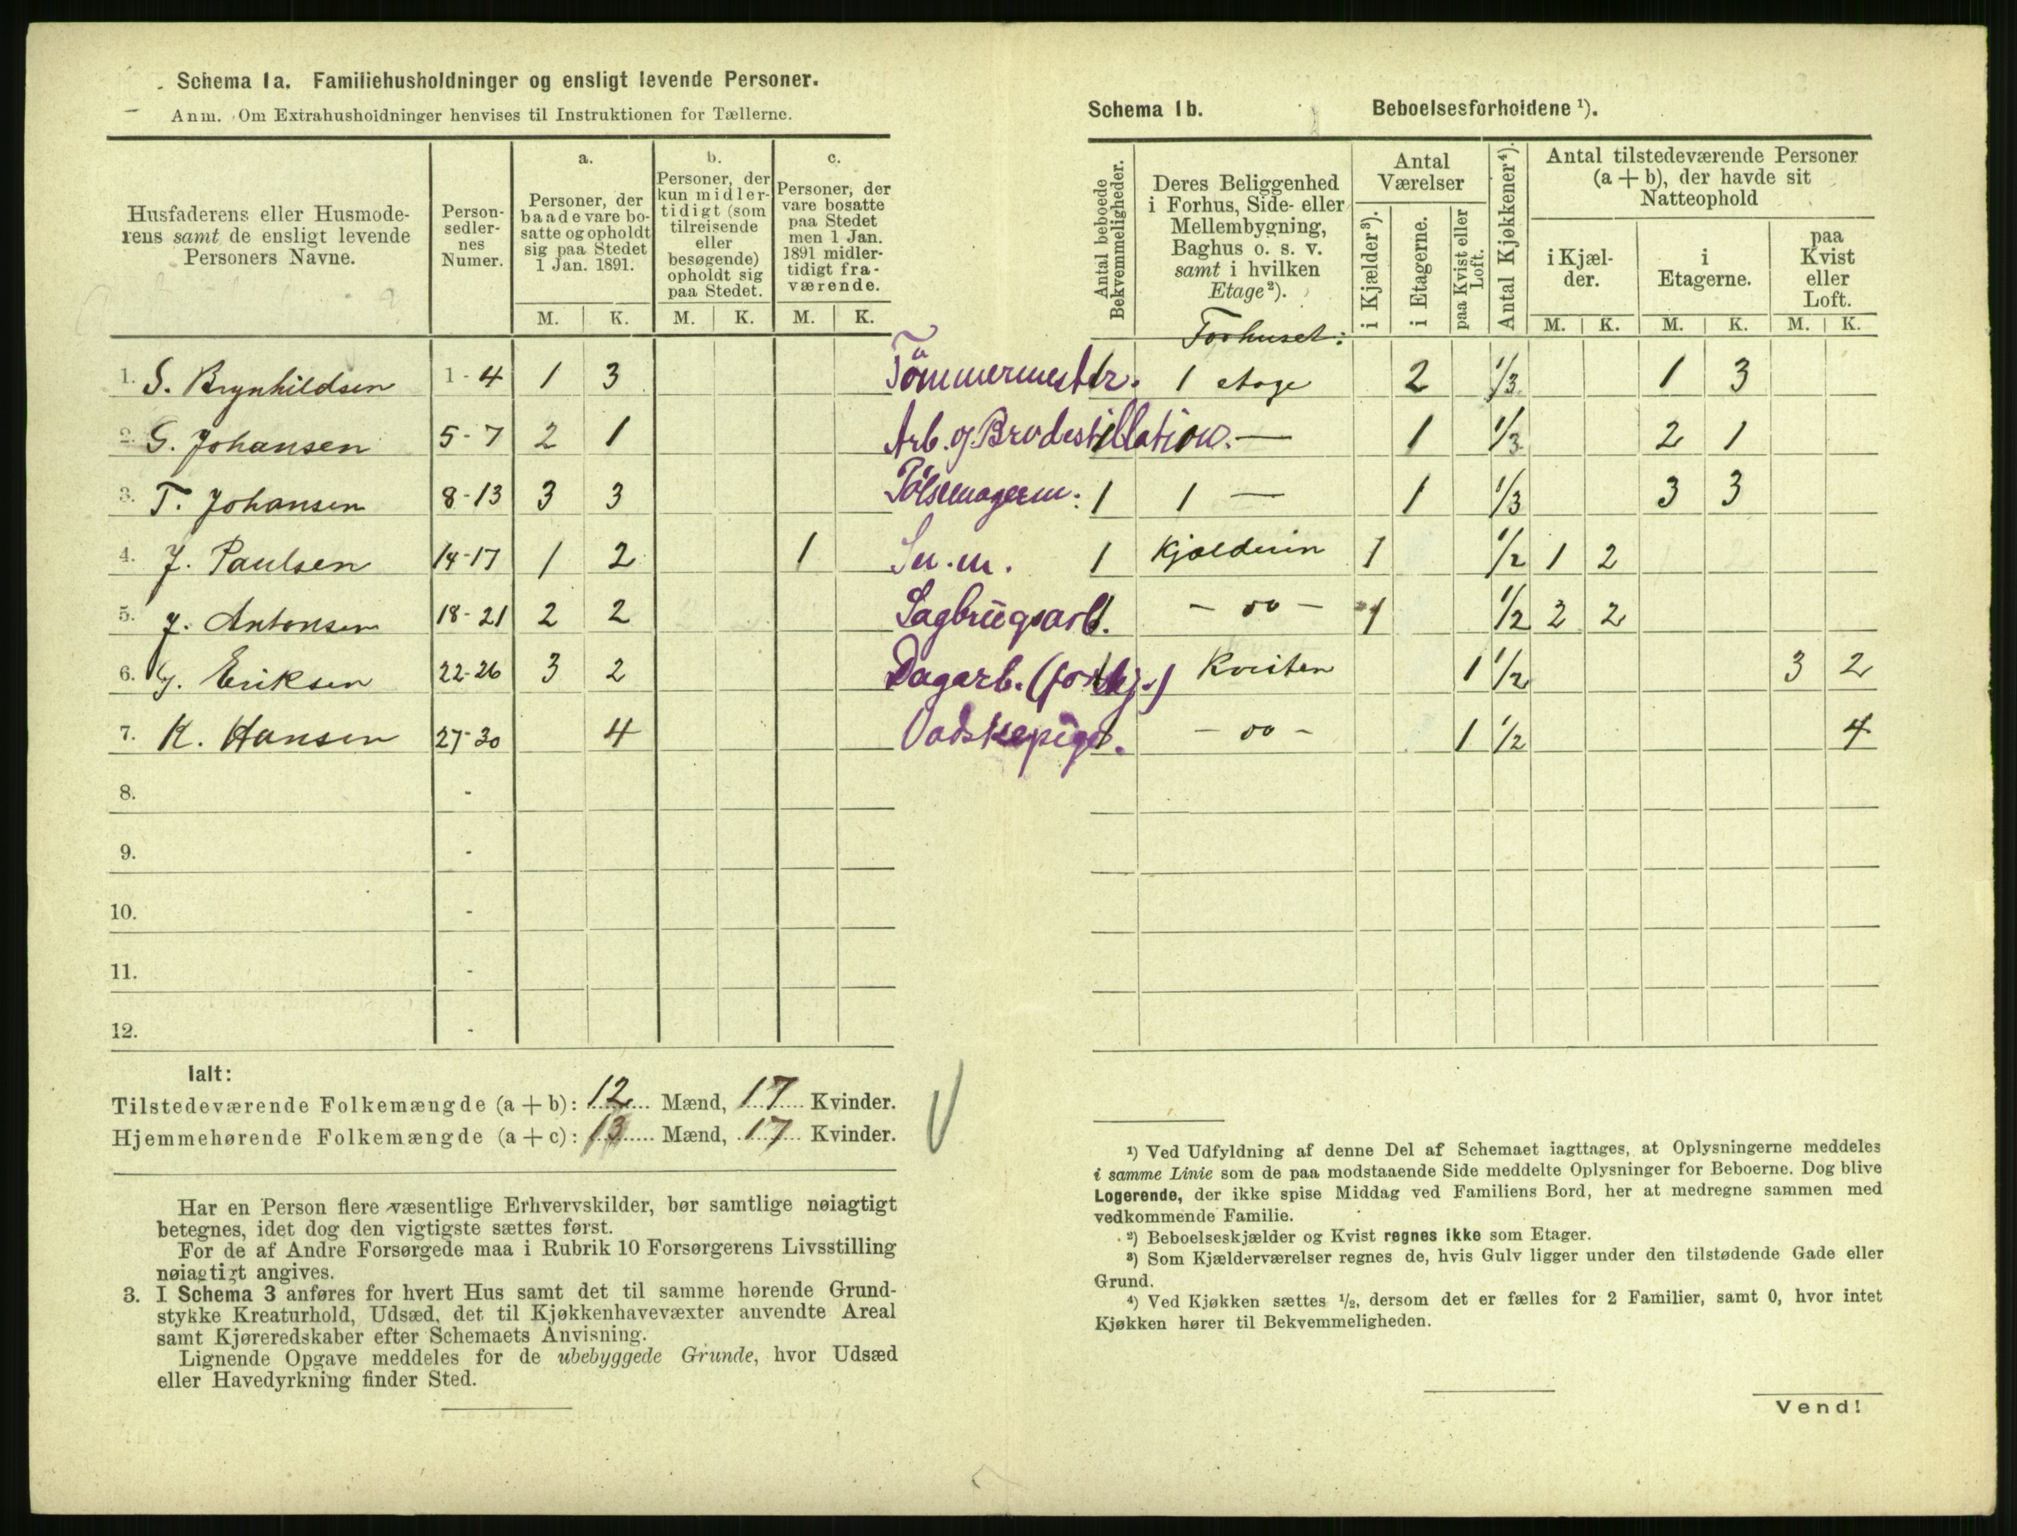 Schema 1a. Familiehusholdninger og ensligt levende Personer.
Anm. Om Extrahusholdninger henvises til Instruktionen for Tællerne.
Husfaderens eller Husmoderens samt de ensligt levende Personers Navne.
Personsedlernes Numer.
a.
Personer, der baade vare bosatte og opholdt sig paa Stedet 1 Jan. 1891.
b.
Personer, der kun midlertidigt (som tilreisende eller besøgende) opholdt sig paa Stedet.
c.
Personer, der vare bosatte paa Stedet men 1 Jan. 1891 midlertidigt fraværende.
M. K. M. K. M. K.
1. S. Brynhildsen 1-4 1 3 Tömmermester.
2. G. Johansen 5-7 2 1 Arb. og Brodestillation.
3. T. Johansen 8-13 3 3 Pölsemagerm.
4. J. Paulsen 14-17 1 2 1 Sn.m.
5. J. Antonsen 18-21 2 2 Sagbrugsarb.
6. J. Eriksen 22-26 3 2 Dagarb. (forskj.)
7. K. Hansen 27-30 4 Vadskepige.
8. -
9. -
10. -
11. -
12. -
Ialt:
Tilstedeværende Folkemængde (a + b): 12 Mænd, 17 Kvinder.
Hjemmehørende Folkemængde (a + c): 13 Mænd, 17 Kvinder.
Har en Person flere væsentlige Erhvervskilder, bør samtlige nøiagtigt
betegnes, idet dog den vigtigste sættes først.
For de af Andre Forsørgede maa i Rubrik 10 Forsørgerens Livsstilling
nøiagtigt angives.
3. I Schema 3 anføres for hvert Hus samt det til samme hørende Grund-
stykke Kreaturhold, Udsæd, det til Kjøkkenhavevæxter anvendte Areal
samt Kjøreredskaber efter Schemaets Anvisning.
Lignende Opgave meddeles for de ubebyggede Grunde, hvor Udsæd
eller Havedyrkning finder Sted.
Schema 1b. Beboelsesforholdene ¹).
Antal beboede Bekvemmeligheder.
Deres Beliggenhed i Forhus, Side- eller Mellembygning, Baghus o. s. v. samt i hvilken Etage²).
Antal Værelser
i Kjælder³).
i Etagerne.
paa Kvist eller Loft.
Antal Kjøkkener⁴).
Antal tilstedeværende Personer (a + b), der havde sit Natteophold
i Kjælder.
i Etagerne.
paa Kvist eller Loft.
M. K. M. K. M. K.
Forhuset:
1 1 etage 2 1/3 1 3
1 1 — 1 1/3 2 1
1 1 — 1 1/3 3 3
1 Kjælderen 1 1/2 1 2
1 - oo - 1 1/2 2 2
1 Kvisten 1 1/2 3 2
1 - oo - 1 1/2 4
¹) Ved Udfyldning af denne Del af Schemaet iagttages, at Oplysningerne meddeles
i samme Linie som de paa modstaaende Side meddelte Oplysninger for Beboerne. Dog blive
Logerende, der ikke spise Middag ved Familiens Bord, her at medregne sammen med
vedkommende Familie.
²) Beboelseskjælder og Kvist regnes ikke som Etager.
³) Som Kjælderværelser regnes de, hvis Gulv ligger under den tilstødende Gade eller
Grund.
⁴) Ved Kjøkken sættes ½, dersom det er fælles for 2 Familier, samt 0, hvor intet
Kjøkken hører til Bekvemmeligheden.
Vend!